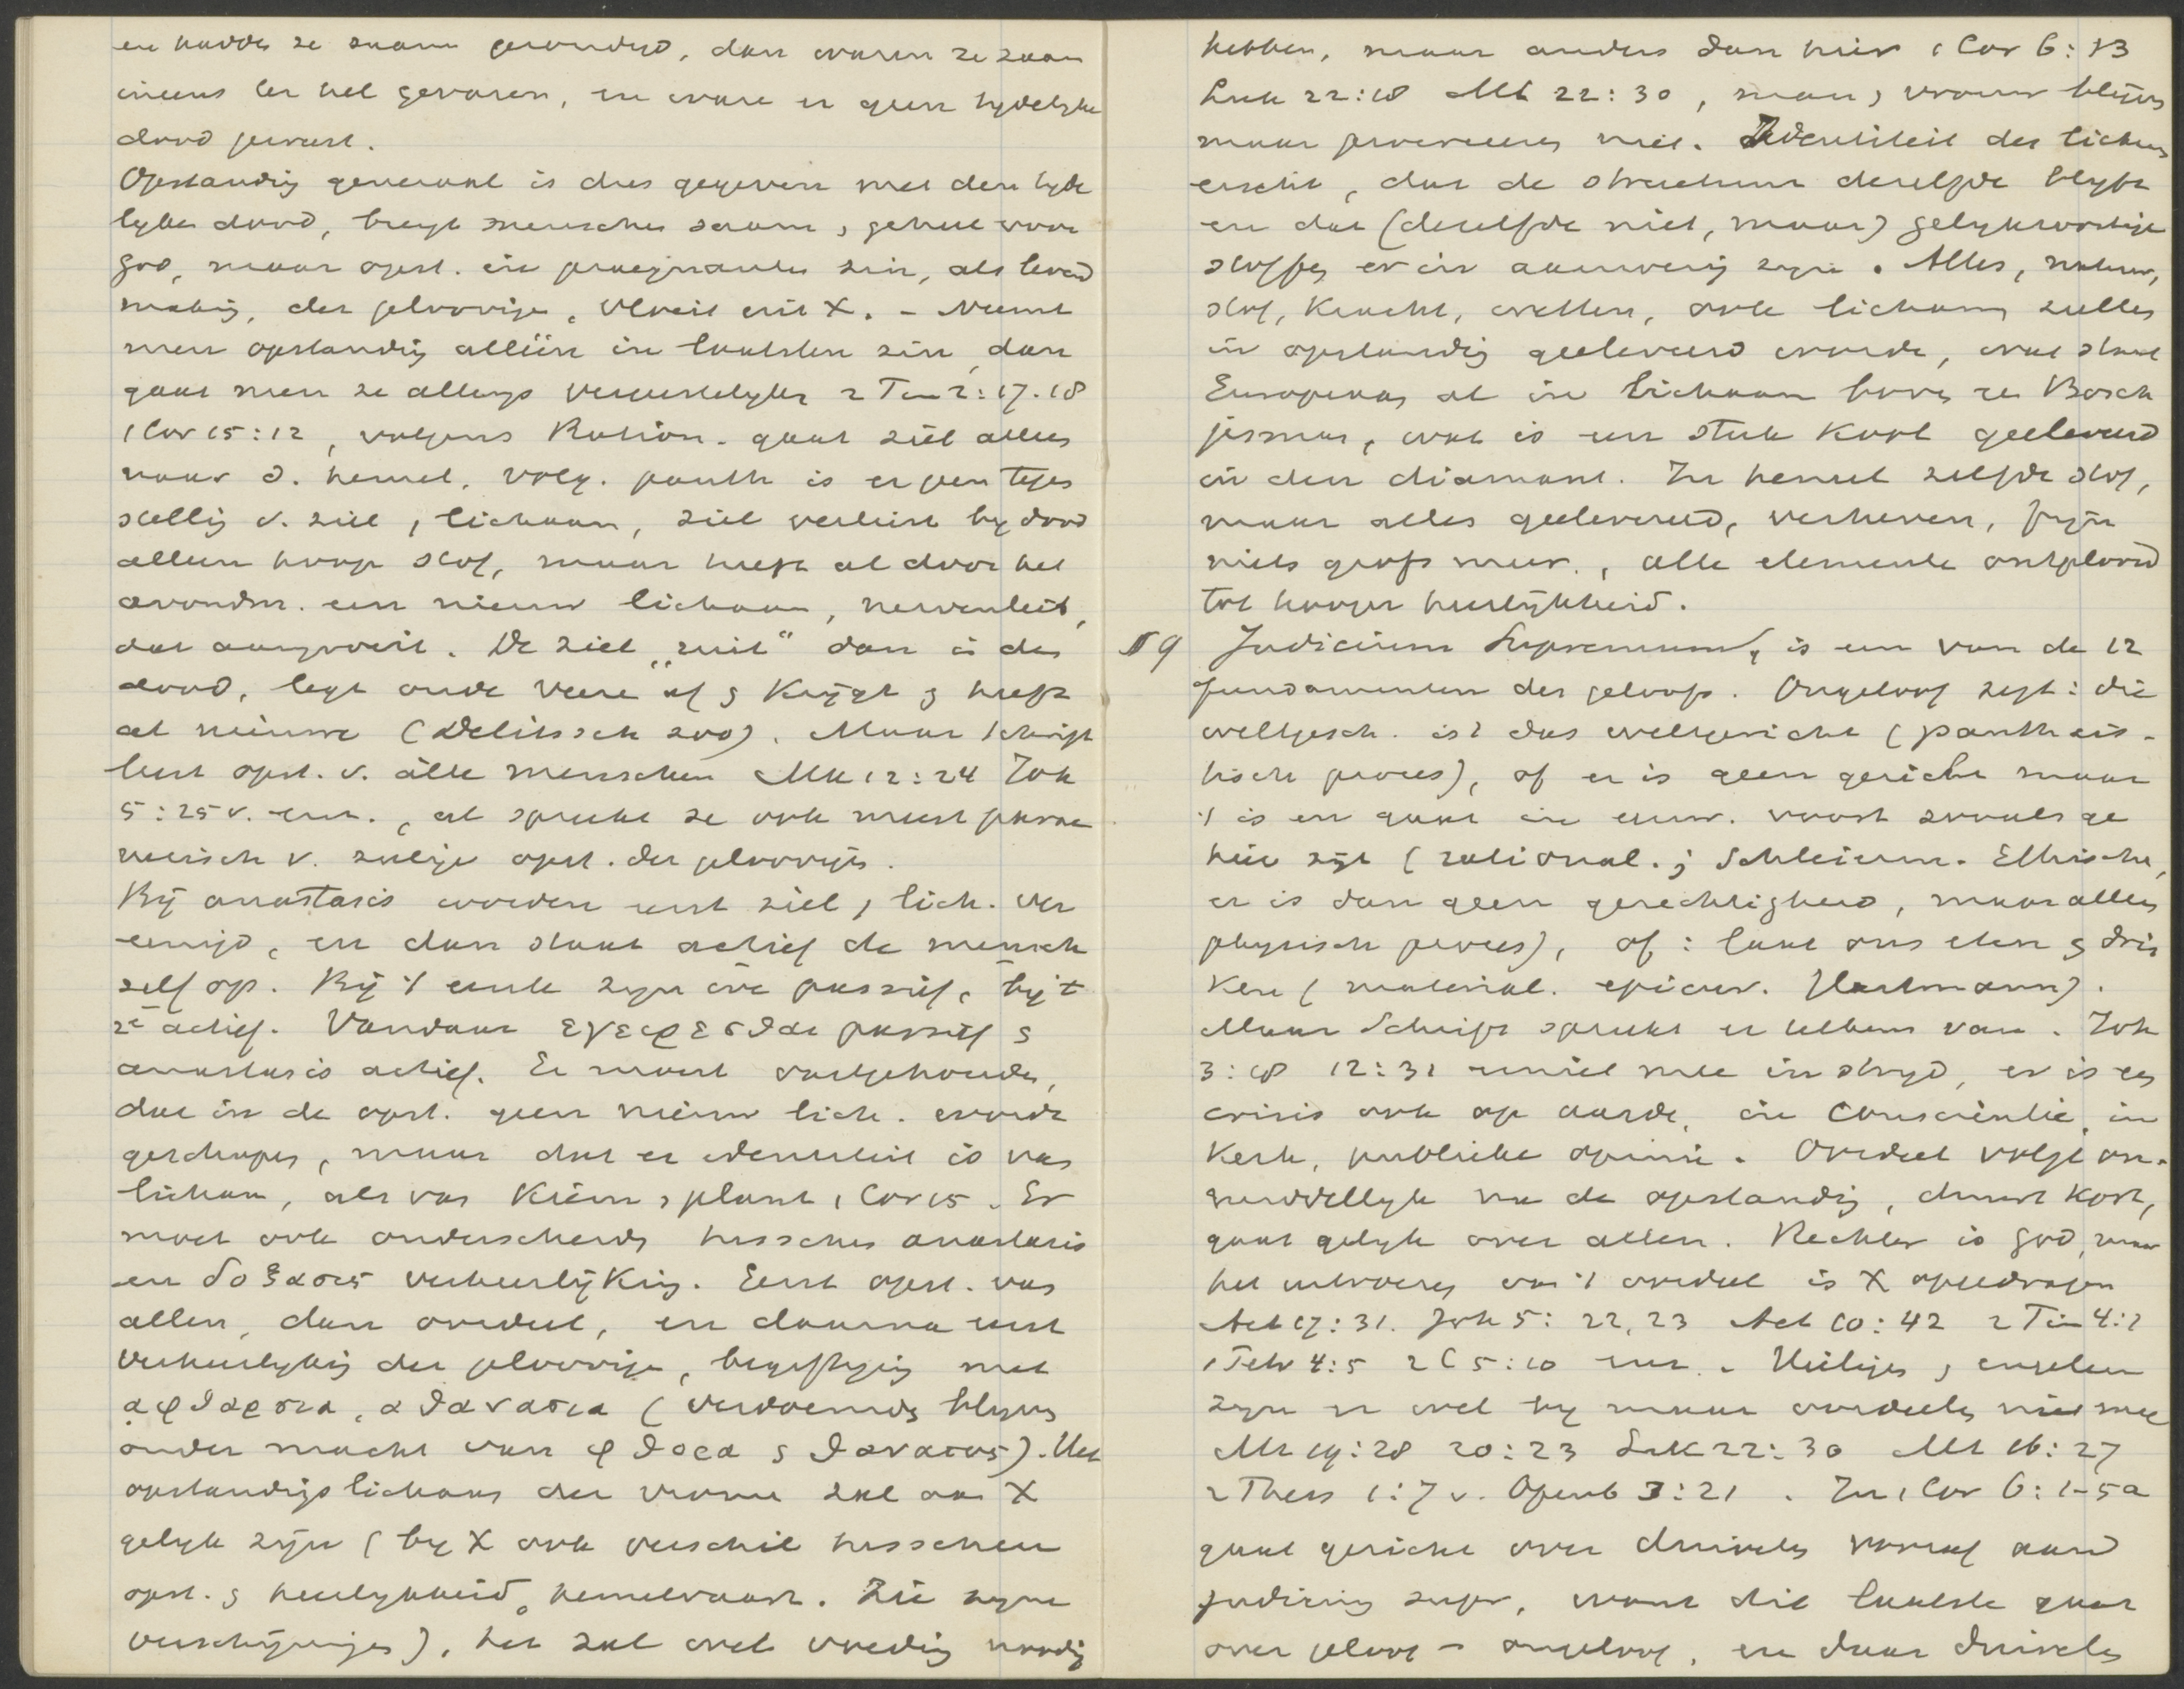 en hadden ze saam gezondigd, dan waren ze zoo
ineens ter hel gevaren, en ware er geen tydelyke
dood geweest.
Opstanding generaal is dus gegeven met den tyde
lyken dood, brengt menschen saam, geheel voor
God, maar opst. in praegnanten zin, als levend
making, der geloovigen, vloeit uit X. - Neemt
men opstanding alléén in laatsten zin, dan
gaat men ze allengs vergeestelyken 2 Tim 2:17.18
1 Cor 15:12, volgens Ration. gaat ziel alleen
naar d. hemel, volg. panth is er geen tegen
stelling v. ziel, lichaam, ziel verliest by dood
alleen hoop stof, maar heeft al door het
avondm. een nieuw lichaam, nervenleib,
dat aangroeit. De ziel "ruit" dan in den
dood, legt oude veere af & krijgt & heeft
al nieuwe (Delitzsch zoo). Maar Schrift
leert opst. v. alle menschen Mk 12:24 Joh
5:25 v. enz., al spreekt ze ook meest parae
netisch v. zalige opst. der geloovigen.
Bij anastasis worden eerst ziel, lich. ver
eenigd, en dan staat actief de mensch
zelf op. Bij 't eerste zyn we passief, by t
2e actief. Vandaar εγειρεσθαι passief &
anastasis actief. Er moet vastgehouden,
dat in de opst. geen nieuw lich. wordt
geschapen, maar dat er identiteit is van
lichaam, als van kiem, plant 1 Cor 15. Er
moet ook onderscheiden tusschen anastasis
en δοξασις verheerlijking. Eerst opst. van
allen, dan oordeel, en daarna eerst
verheerlyking der geloovigen, begiftiging met
αφθαρσια, αθανασια (verdoemden blyven
onder macht van φθορα & θανατος). Het
opstandingslichaam der vrome zal aan X
gelyk zyn (by X ook verschil tusschen
opst. & heerlykheid, hemelvaart. Zie zyne
verschijningen), het zal wel voeding noodig
hebben, maar anders dan hier 1 Cor 6:13
Luk 22:18 Mt 22:30, man, vrouw blijven
maar procreeeren niet. Identiteit des lichaams
eischt, dat de structuur dezelfde blyft
en dat (dezelfde niet, maar) gelykwaardige
stoffen er in aanwezig zyn. Alles, natuur,
stof, kracht, wetten, ook lichaam zullen
in opstanding geëleveerd worden, wat staat
Europeaan al in lichaam boven een Bosch
jesman, wat is een stuk kool geëleveerd
in den diamant. In hemel zelfde stof,
maar alles geëleveerd, verheven, fyn
niets grofs meer, alle elementen ontplooid
tot hooger heerlijkheid.
§ 9 Judicium Supremum, is een van de 12
fundamenten des geloofs. Ongeloof zegt: die
weltgesch. ist das weltgericht (pantheis-
tisch proces), of er is geen gericht maar
't is en gaat in eeuw. voort zooals ge
hier zyt (rational.; Schleierm. Ethische,
er is dan geen gerechtigheid, maar alleen
physisch proces), of: laat ons eten & drin
ken (material. epicur. Hartmann).
Maar Schrift spreekt er telkens van. Joh
3:18 12:31 eenniet mee in stryd, er is een
crisis ook op aarde, in conscientie, in
kerk, publieke opinie. Oordeel volgt on-
middellyk na de opstanding, duurt kort,
gaat gelyk over allen. Rechter is God, maar
het uitvoeren van 't oordeel is X opgedragen
Act 17:31. Joh 5:22,23 Act 10:42 2 Tim 4:1
1 Petr 4:5 2 C 5:10 enz. Heiligen, engelen
zyn er wel by maar oordeelen niet mee
Mt 19:28 20:23 Luk 22:30 Mt 16:27
2 Thess 1:7 v. Openb 3:21. In 1 Cor 6:1-5a
gaat gericht over duivelen vooraf aan d
judicium supr, want dit laatste gaat
over geloof - ongeloof, en daar duivelen